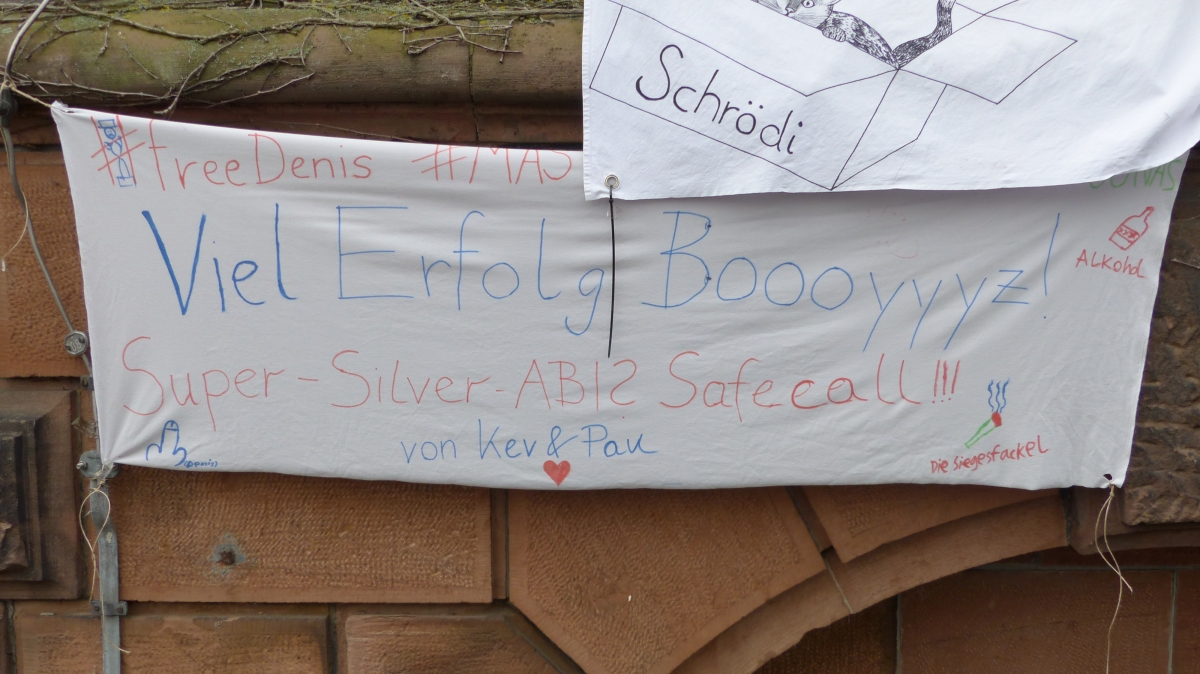 Schrödi
#freeDenis #MAS
Viel Erfolg Boooyyyz!
ALKohol
Super-Silver-AB12 Safecall!!!
von Kev & Pau
Die Siegesfackel